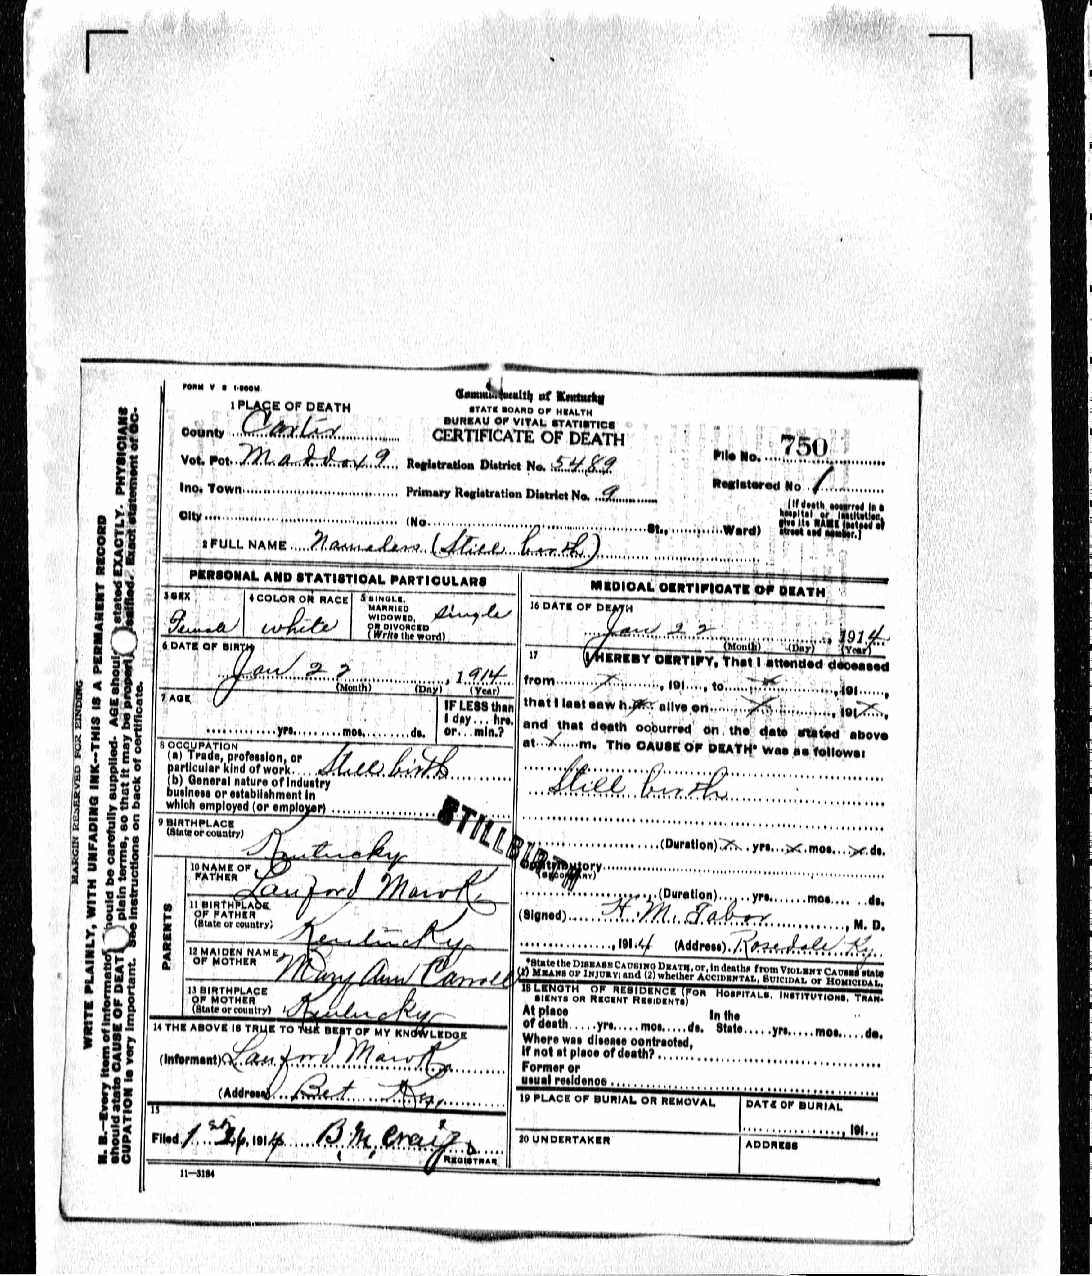 FORM V S 1-500M.
Commonwealth of Kentucky
STATE BOARD OF HEALTH
BUREAU OF VITAL STATISTICS
CERTIFICATE OF DEATH
1 PLACE OF DEATH
County Carter
Vot. Pct. Maddox 9 Registration District No. 5489
Inc. Town Primary Registration District No. 9
City (No. St., Ward)
File No. 750
Registered No 1
[If death occurred in a
hospital or institution,
give its NAME instead of
street and number.]
2 FULL NAME Nameless (Still birth)
PERSONAL AND STATISTICAL PARTICULARS
3 SEX
Female
4 COLOR OR RACE
white
5 SINGLE,
MARRIED
WIDOWED,
OR DIVORCED
(Write the word)
single
6 DATE OF BIRTH
Jan 22, 1914
(Month) (Day) (Year)
7 AGE
yrs. mos. ds.
IF LESS than
1 day... hrs.
or... min.?
8 OCCUPATION
(a) Trade, profession, or
particular kind of work Still birth
(b) General nature of industry
business or establishment in
which employed (or employer)
9 BIRTHPLACE
(State or country)
Kentucky
PARENTS
10 NAME OF
FATHER
Lanford Mawk
11 BIRTHPLACE
OF FATHER
(State or country)
Kentucky
12 MAIDEN NAME
OF MOTHER
Mary Ann Carroll
13 BIRTHPLACE
OF MOTHER
(State or country)
Kentucky
14 THE ABOVE IS TRUE TO THE BEST OF MY KNOWLEDGE
(Informant) Lanford Mawk
(Address) Bet Ky.
15
Filed 1 26, 1914 B. M. Craig
REGISTRAR
11—3184
STILLBIRTH
MEDICAL CERTIFICATE OF DEATH
16 DATE OF DEATH
Jan 22, 1914
(Month) (Day) (Year)
17 I HEREBY CERTIFY, That I attended deceased
from x, 191..., to x, 191...,
that I last saw h alive on x, 191x,
and that death occurred on the date stated above
at x m. The CAUSE OF DEATH* was as follows:
Still birth
(Duration) x yrs. x mos. x ds.
Contributory
(SECONDARY)
(Duration) yrs. mos. ds.
(Signed) H. M. Tabor, M. D.
, 1914 (Address) Rosedale Ky.
*State the DISEASE CAUSING DEATH, or, in deaths from VIOLENT CAUSES state
(1) MEANS OF INJURY; and (2) whether ACCIDENTAL, SUICIDAL or HOMICIDAL.
18 LENGTH OF RESIDENCE (FOR HOSPITALS, INSTITUTIONS, TRAN-
SIENTS OR RECENT RESIDENTS)
At place In the
of death yrs. mos. ds. State yrs. mos. ds.
Where was disease contracted,
if not at place of death?
Former or
usual residence
19 PLACE OF BURIAL OR REMOVAL
DATE OF BURIAL
, 191...
20 UNDERTAKER
ADDRESS
MARGIN RESERVED FOR BINDING
WRITE PLAINLY, WITH UNFADING INK—THIS IS A PERMANENT RECORD
N. B.—Every item of information should be carefully supplied. AGE should stated EXACTLY. PHYSICIANS
should state CAUSE OF DEATH plain terms, so that it may be properl assified. Exact statement of OC-
CUPATION is very important. See instructions on back of certificate.